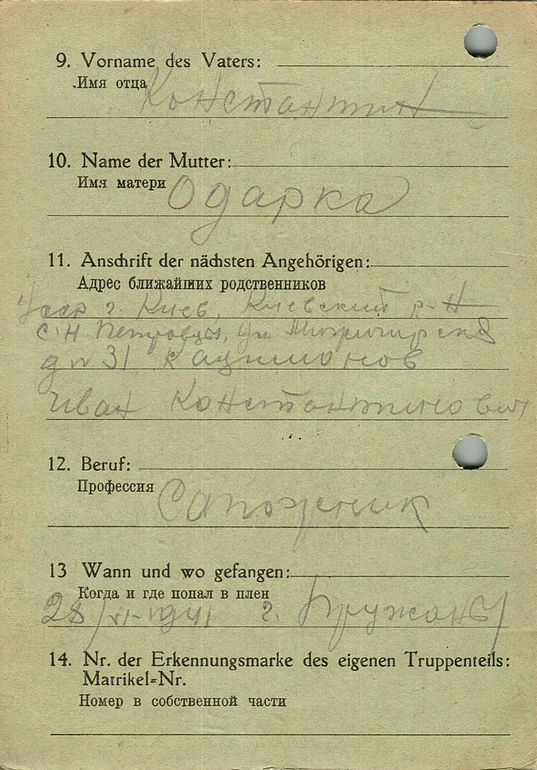 9. Vorname des Vaters:
Имя отца
Константин
10. Name der Mutter:
Имя матери
Одарка
11. Anschrift der nächsten Angehörigen:
Адрес ближайших родственников
Усср г. Киев, Киевский р-н
с. Н Петровцы, ул
дп 31
Иван Константинович
12. Beruf:
Профессия
Сапожник
13 Wann und wo gefangen:
Когда и где попал в плен
28/VI-1941 г. Пружаны
14. Nr. der Erkennungsmarke des eigenen Truppenteils:
Matrikel=Nr.
Номер в собственной части